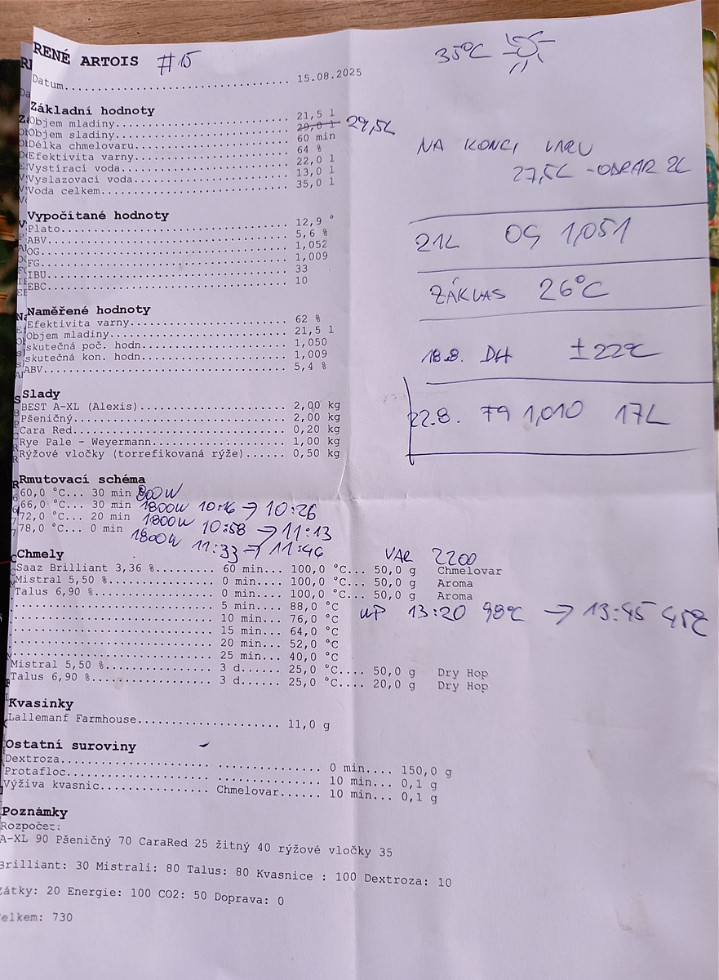 RENÉ ARTOIS #15
35°C
Datum................................ 15.08.2025
Základní hodnoty
Objem mladiny........................ 21,5 l
Objem sladiny........................ 29,0 l 29,5L
Délka chmelovaru..................... 60 min
Efektivita varny..................... 64 %
Vystírací voda....................... 22,0 l
Vyslazovací voda..................... 13,0 l
Voda celkem.......................... 35,0 l
NA KONCI VARU
27,5L - ODBĚR 2L
Vypočítané hodnoty
Plato................................ 12,9 °
ABV.................................. 5,6 %
OG................................... 1,052
FG................................... 1,009
IBU.................................. 33
EBC.................................. 10
21L OG 1,051
ZÁKVAS 26°C
Naměřené hodnoty
Efektivita varny..................... 62 %
Objem mladiny........................ 21,5 l
skutečná poč. hodn................... 1,050
skutečná kon. hodn................... 1,009
ABV.................................. 5,4 %
18.8. DH ±22°C
22.8. FG 1,010 17L
Slady
BEST A-XL (Alexis)................... 2,00 kg
Pšeničný............................. 2,00 kg
Cara Red............................. 0,20 kg
Rye Pale - Weyermann................. 1,00 kg
Rýžové vločky (torrefikovaná rýže)... 0,50 kg
Rmutovací schéma
60,0 °C... 30 min 800W
66,0 °C... 30 min 1800W 10:16 → 10:26
72,0 °C... 20 min 1800W 10:58 → 11:13
78,0 °C... 0 min 1800W 11:33 → 11:46
Chmely
VAR 2200
Saaz Brilliant 3,36 %......... 60 min... 100,0 °C... 50,0 g Chmelovar
Mistral 5,50 %................ 0 min.... 100,0 °C... 50,0 g Aroma
Talus 6,90 %.................. 0 min.... 100,0 °C... 50,0 g Aroma
.............................. 5 min.... 88,0 °C
.............................. 10 min... 76,0 °C
.............................. 15 min... 64,0 °C
.............................. 20 min... 52,0 °C
.............................. 25 min... 40,0 °C
WP 13:20 98°C → 13:45 45°C
Mistral 5,50 %................ 3 d...... 25,0 °C.... 50,0 g Dry Hop
Talus 6,90 %.................. 3 d...... 25,0 °C.... 20,0 g Dry Hop
Kvasinky
Lallemanf Farmhouse.................... 11,0 g
Ostatní suroviny
Dextroza..................... ............... 0 min.... 150,0 g
Protafloc.................... ............... 10 min... 0,1 g
Výživa kvasnic............... Chmelovar...... 10 min... 0,1 g
Poznámky
Rozpočet:
A-XL 90 Pšeničný 70 CaraRed 25 žitný 40 rýžové vločky 35
Brilliant: 30 Mistrali: 80 Talus: 80 Kvasnice : 100 Dextroza: 10
Zátky: 20 Energie: 100 CO2: 50 Doprava: 0
Celkem: 730